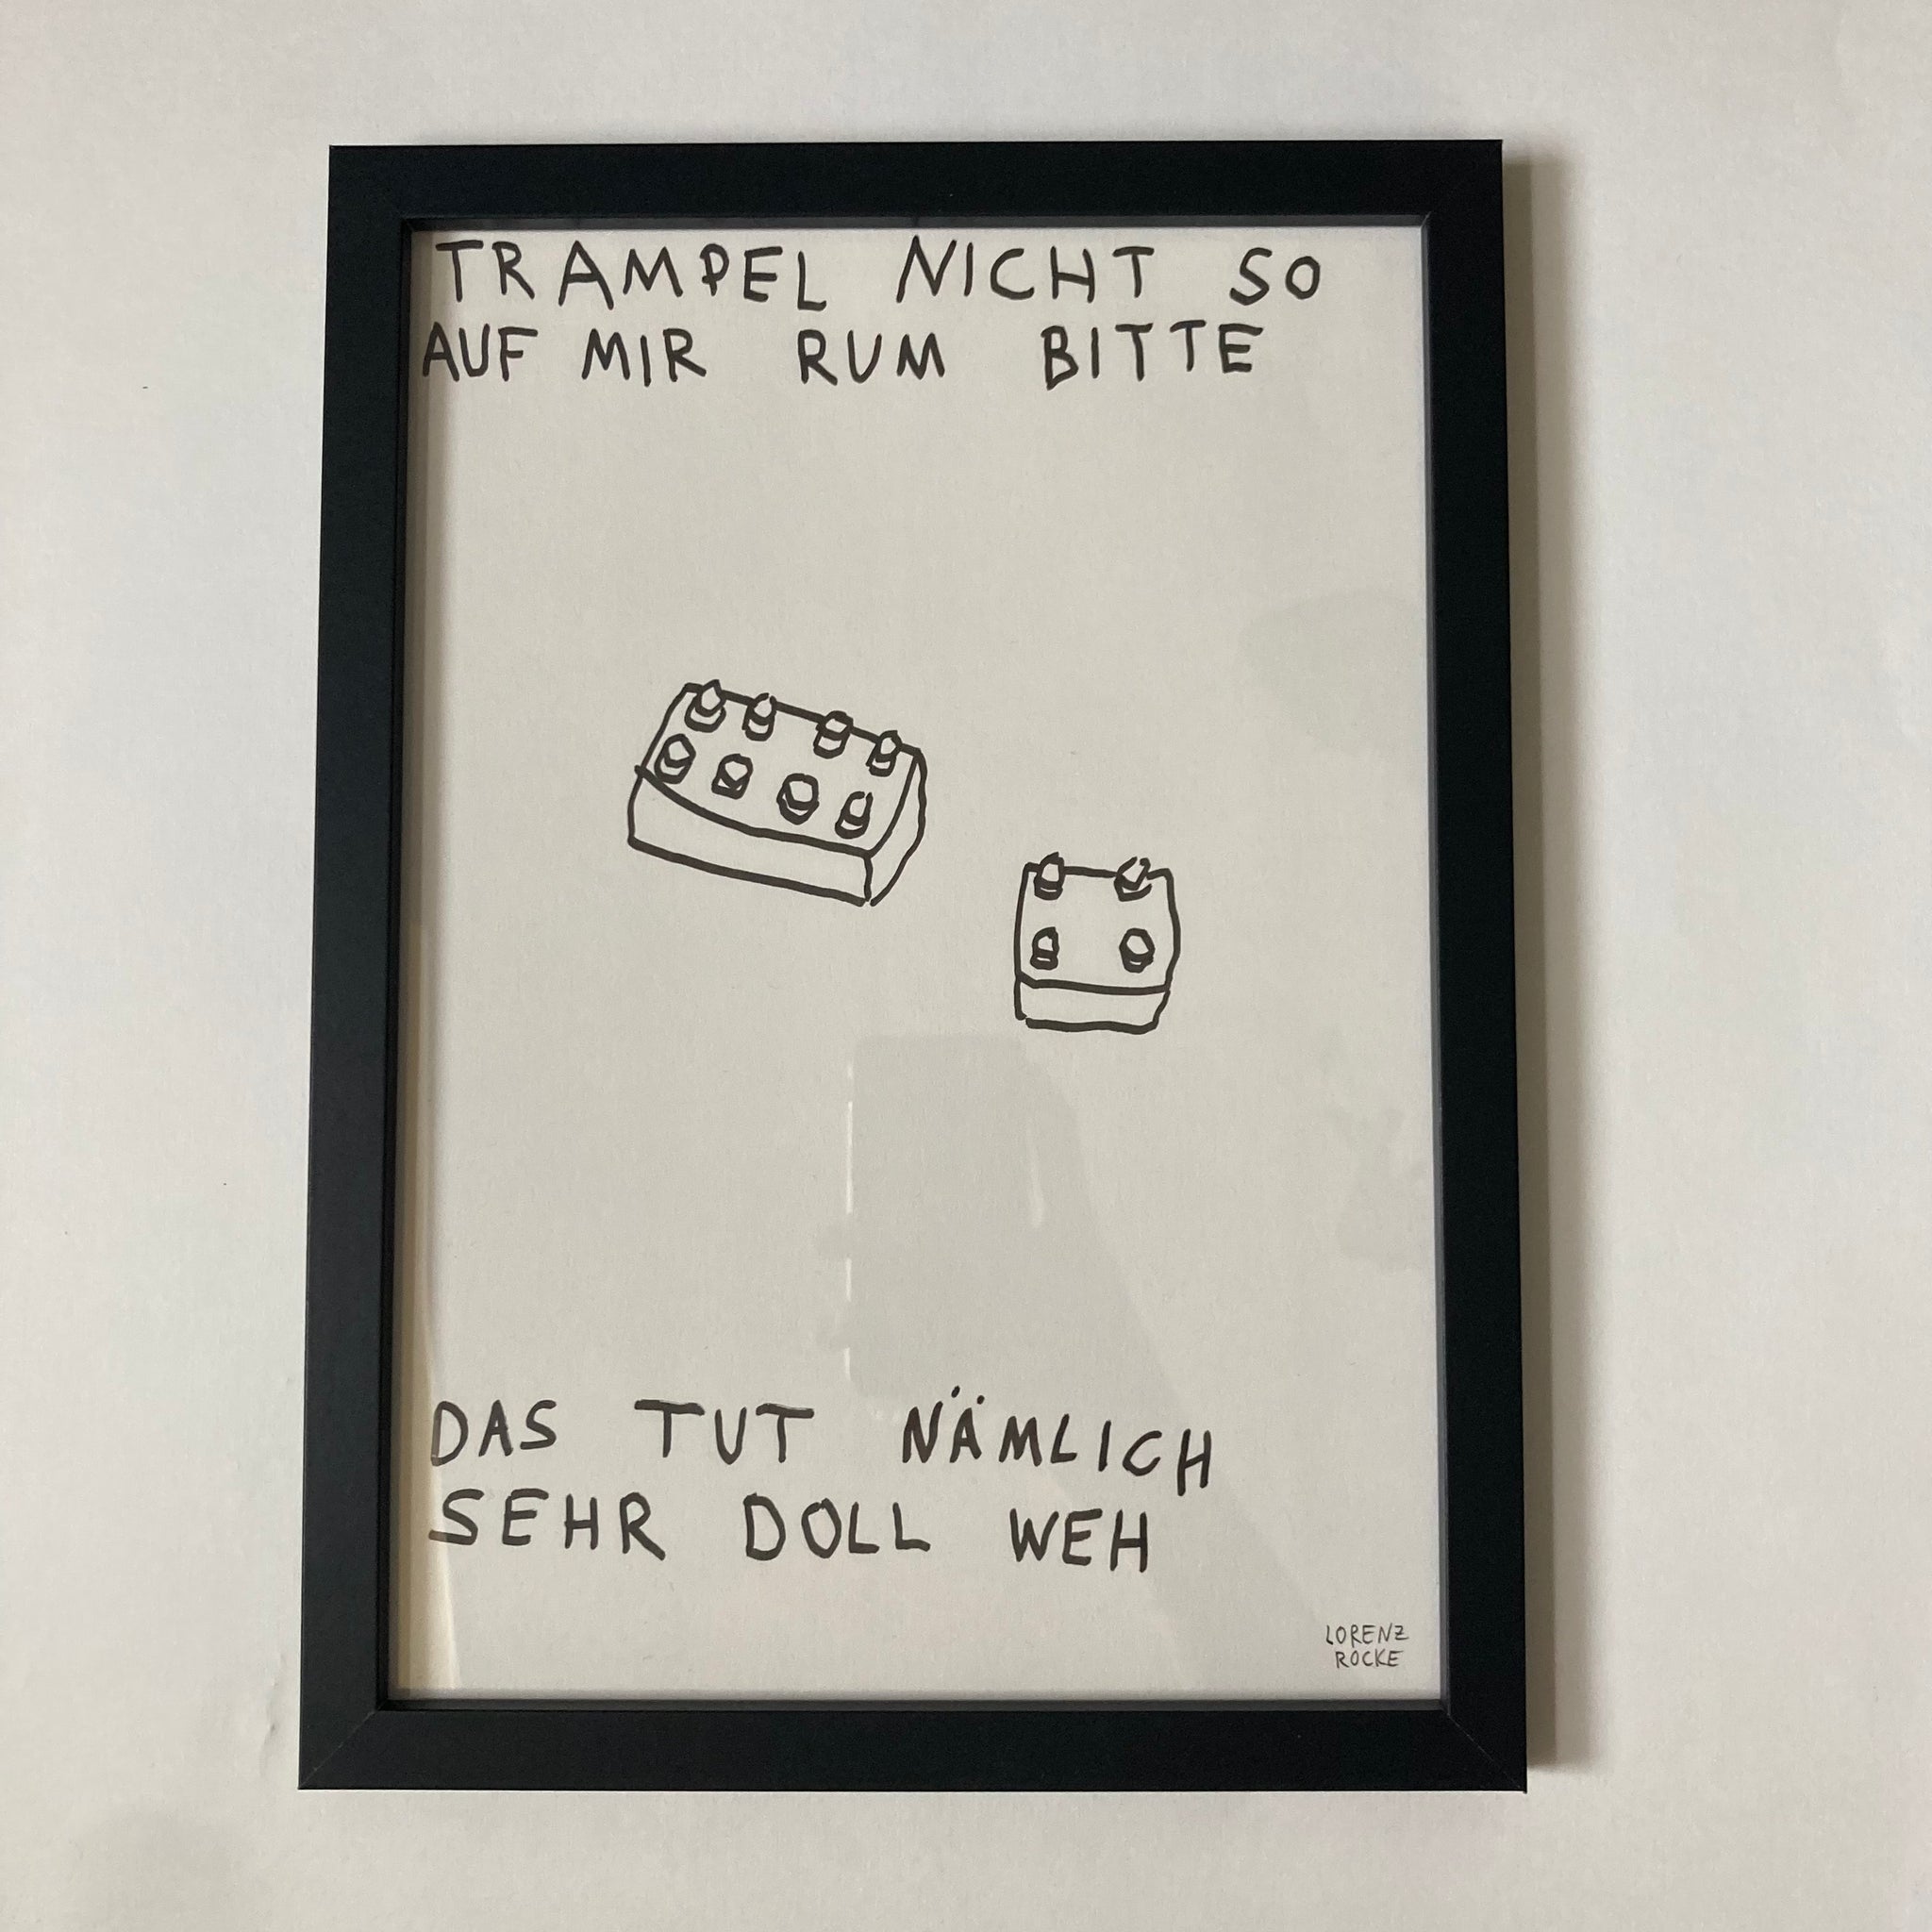 TRAMPEL NICHT SO
AUF MIR RUM BITTE
DAS TUT NÄMLICH
SEHR DOLL WEH
LORENZ
ROCKE